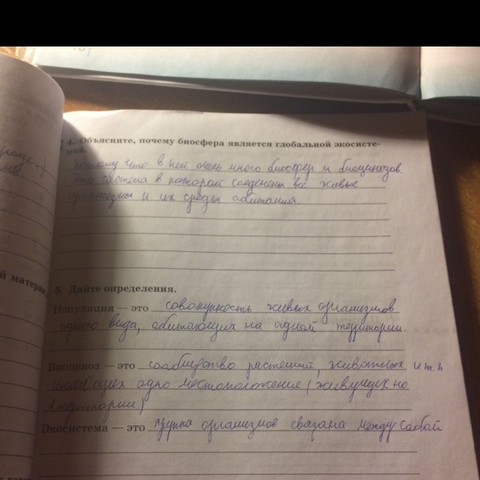 4. Объясните, почему биосфера является глобальной экосисте-
мой.
потому что в ней очень много биосфер и биоценозов
это система в которой соеденены все живые
организмы и их среды обитания
5. Дайте определения.
Популяция — это совокупность живых организмов
одного вида, обитающих на одной территории
Биоценоз — это сообщество растений, животных и т.п
имеющих одно местоположение (живущих на
территории)
Экосистема — это группа организмов связана между собой
й материал